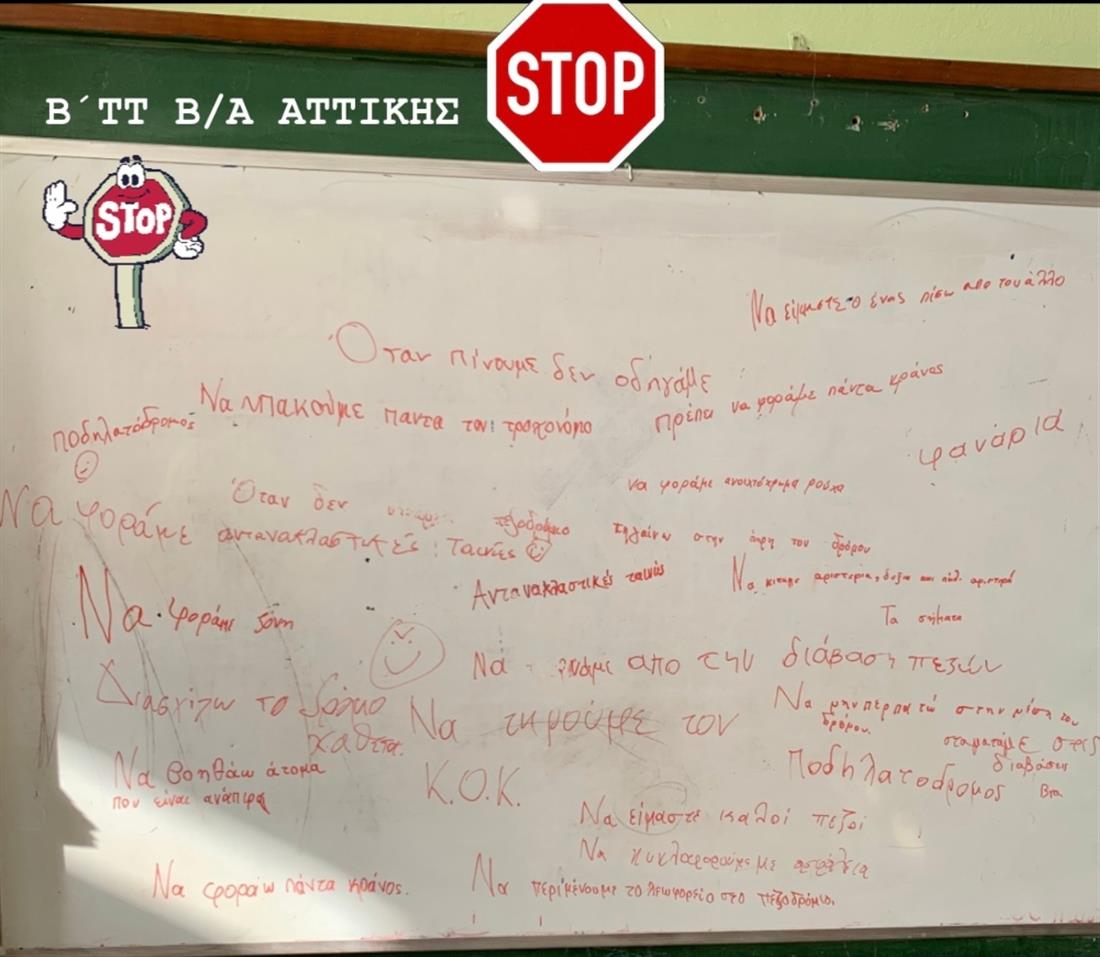 STOP
Β΄ΤΤ Β/Α ΑΤΤΙΚΗΣ
STOP
Να είμαστε ο ένας πίσω απο τον άλλο
Όταν πίνουμε δεν οδηγάμε
Να υπακούμε παντα τον τροχονόμο
πρέπει να φοράμε πάντα κράνος
ποδηλατόδρομος
φανάρια
να φοράμε ανοιχτόχρωμα ρούχα
Όταν δεν πεζοδρόμιο πηγαίνω στην άκρη του δρόμου
Να φοράμε αντανακλαστικές ταινίες
Αντανακλαστικές ταινίες
Να κιταμε αριστερά, δεξια και πάλ. αριστερά
Να φοράμε ζόνη
Τα σήματα
Να περνάμε απο την διάβαση πεζών
Διασχίζω το δρόμο
κάθετα.
Να τηρούμε τον
Κ.Ο.Κ.
Να μην περπατώ στην μέση του
δρόμου.
σταματάμε στις
διαβάσεις
Ποδηλατοδρομος
Να βοηθάω άτομα
που είναι ανάπηρα
Να είμαστε καλοί πεζοί
Να κυκλοφορούμε με ασφάλεια
Να φοράω πάντα κράνος.
Να περιμένουμε το λεωφορείο στο πεζοδρόμιο.